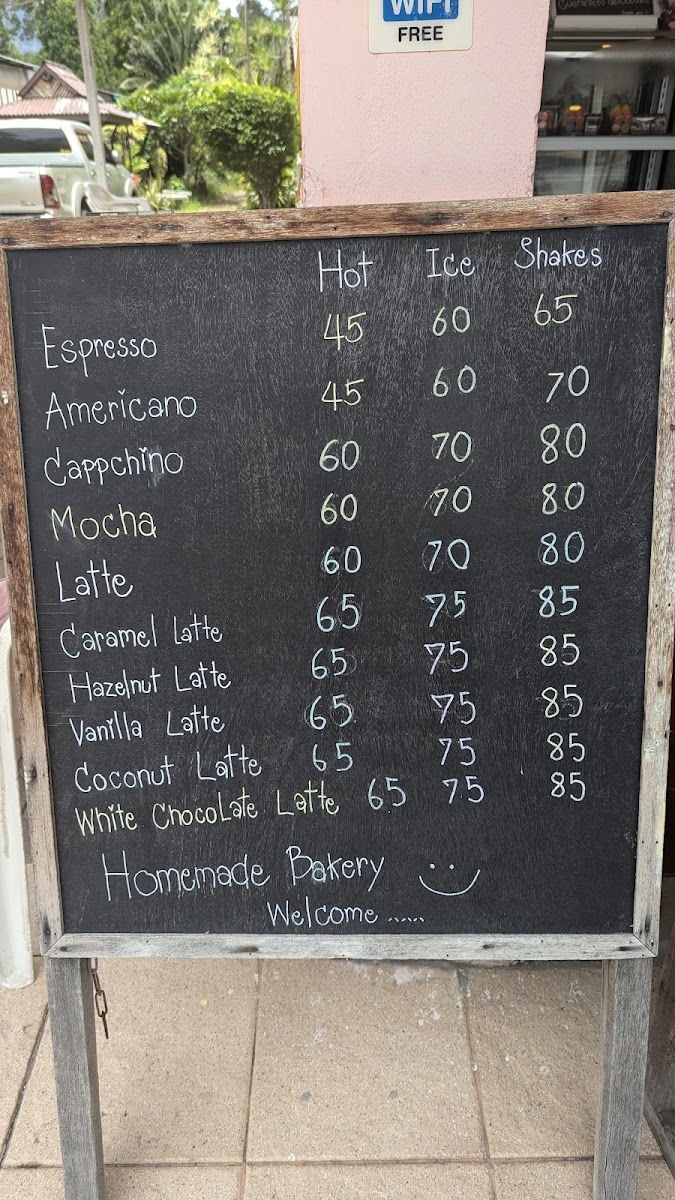 WiFi
FREE
Hot Ice Shakes
Espresso 45 60 65
Americano 45 60 70
Cappchino 60 70 80
Mocha 60 70 80
Latte 60 70 80
Caramel Latte 65 75 85
Hazelnut Latte 65 75 85
Vanilla Latte 65 75 85
Coconut Latte 65 75 85
White Chocolate Latte 65 75 85
Homemade Bakery
Welcome .....